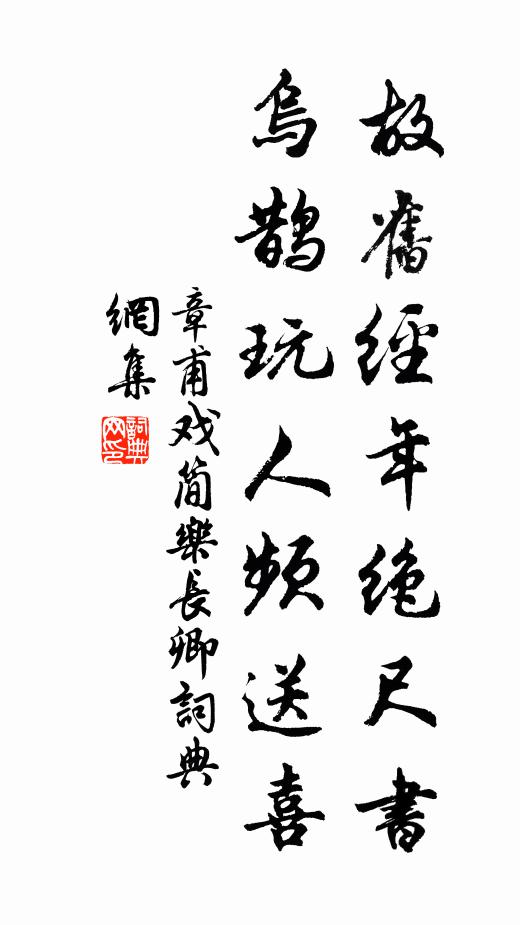 故舊經年絶尺書
烏鵲玩人頻送喜
章甫戏简樂長卿詞典
網集
詞典网印